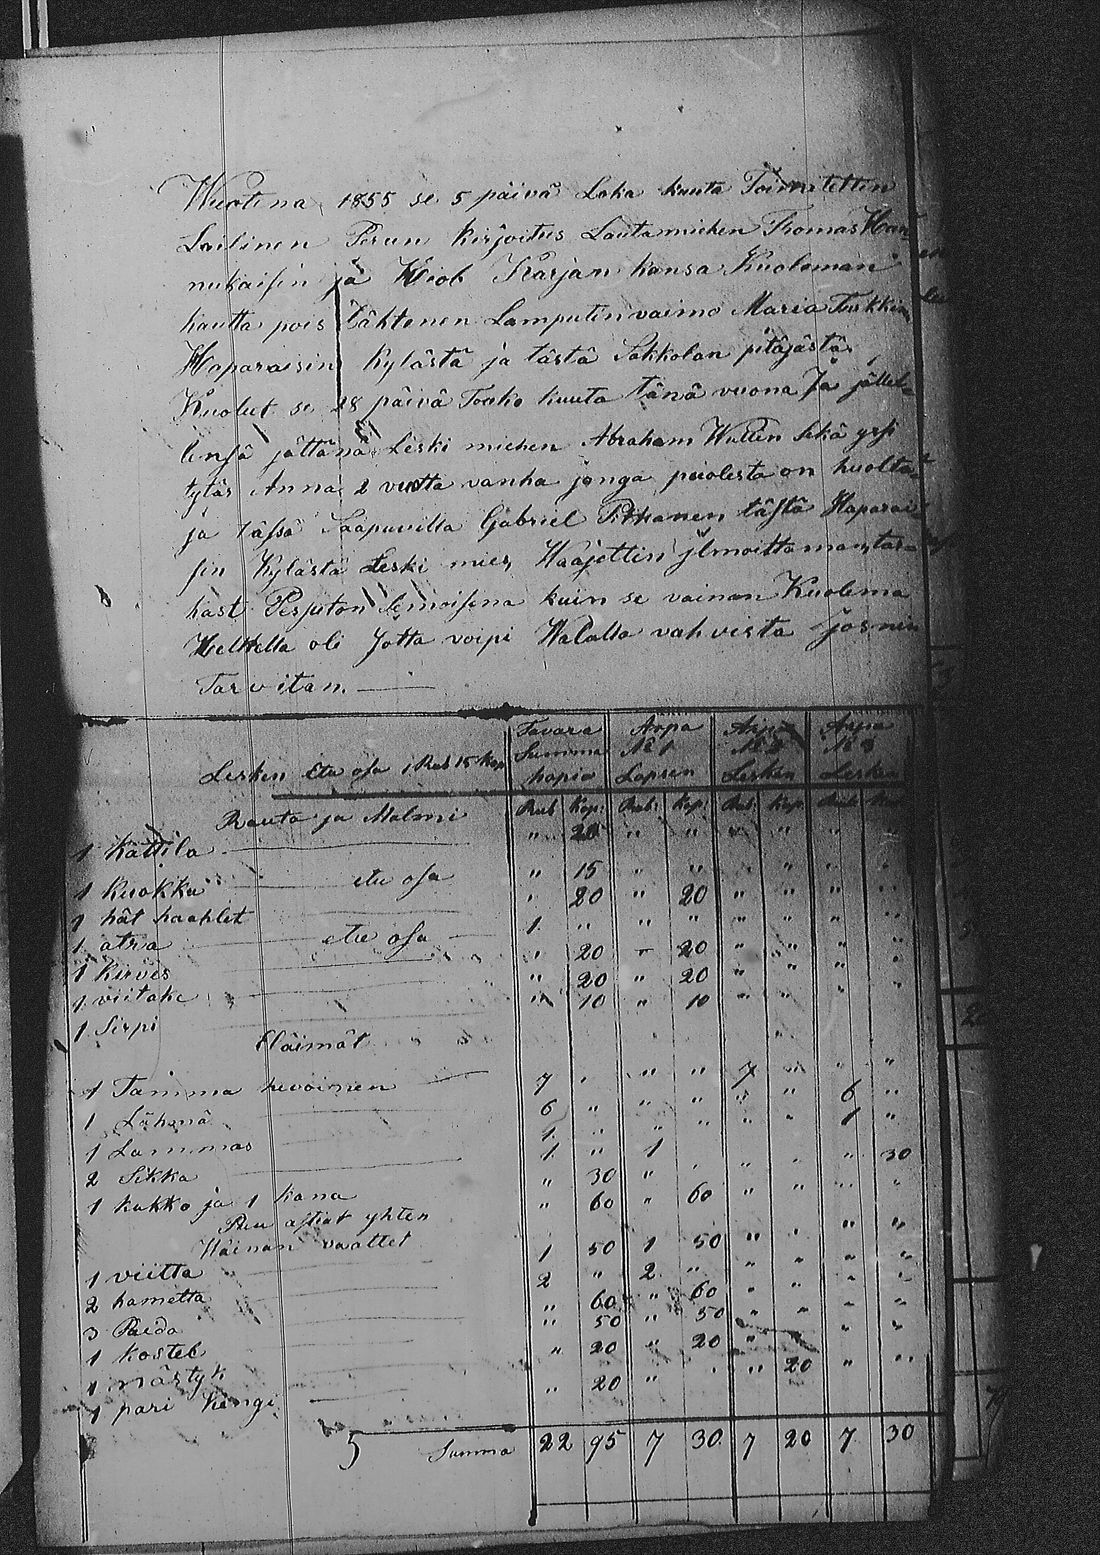 Wuotena 1855 se 5 päivä Loka kuuta Toimitettin
Lailinen Perun kirjoitus Lautamiehen Thomas Han=
nukaisin ja Hiob Karjan kansa Kuoleman
kautta pois lähtenen Lamputin vaimo Maria Tuskkin
Haparaisin kylästä ja tästä Sakkolan pitäjästä
Kuolut se 28 päivä Touko kuuta tänä vuona Ja jälkel=
lensä jättänä Leski miehen Abraham Wullen sekä yxi
tytär Anna 2 vuotta vanha jonga puolesta on huolta
ja tässä Saapuvilla Gabriel Pithanen tästä Haparai
sin kylästä Leski mies Haajettin jlmoittaman tar
kast Pesjuton semoisena kuin se vainan Kuolema
Helkella oli Jotta voipi Walalla vahvista jos niin
Tarvitan.
Lesken Etu osa 1 Rub 15 Kop
Tavara Summa hopia
Arpa N: 1 Lapsen
Arpa N: 2 Lesken
Arpa N: 3 Lesken
Rauta ja Malmi Rub Kop: Rub: Kop: Rub. Kop. Rub Kop
1 Kattila " 20 " " " " "
1 Kuokka etu osa " 15 " " " " " "
1 hät haahlet " 20 " 20 " " " "
1 atra etu osa 1 " " " " " " "
1 kirves " 20 " 20 " " " "
1 viitake " 20 " 20 " " " "
1 Sirpi " 10 " 10 " " "
Eläimät
1 Tamma hevoinen 7 " " " 7 " " "
1 Lähmä 6 " " " " " 6 "
1 Lammas 1 " " " " " 1 "
2 Sikka 1 " 1
1 kukko ja 1 kana " 30 " " " " 30
Puu astiat yhten " 60 " 60 " " " "
Wainan vaattet
1 viitta 1 50 1 50 " " " "
2 hametta 2 " 2 " " " " "
3 Paeda " 60 " 60 " " " "
1 kosteb " 50 " 50 " " " "
1 nästyk " 20 " 20 " " "
1 pari kengi " 20 " " 20 " "
5 Summa 22 95 7 30 7 20 7 30